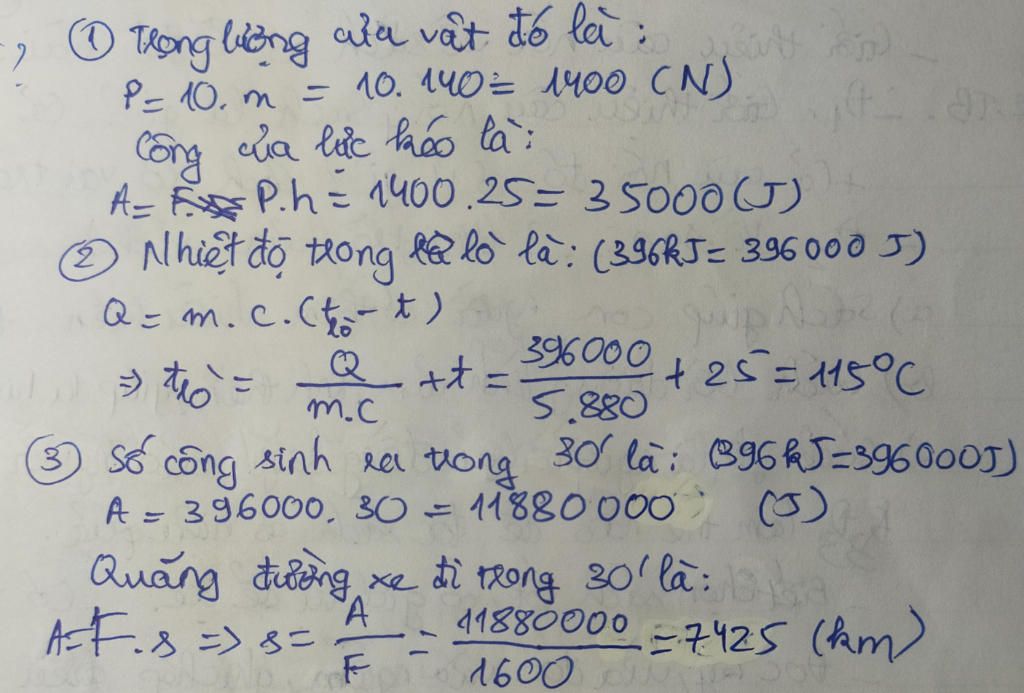 ① Trọng lượng của vật đó là:
P = 10. m = 10. 140 = 1400 (N)
Công của lực kéo là:
A = P.h = 1400 . 25 = 35000 (J)
② Nhiệt độ trong lò là: (396kJ = 396000 J)
Q = m. c. (t lò - t)
⇒ t lò = Q / m.c + t = 396000 / 5.880 + 25 = 115°C
③ Số công sinh ra trong 30' là: (396kJ=396000J)
A = 396000. 30 = 11880000 (J)
Quãng đường xe đi trong 30' là:
A=F.s => s= A / F = 11880000 / 1600 = 7425 (km)